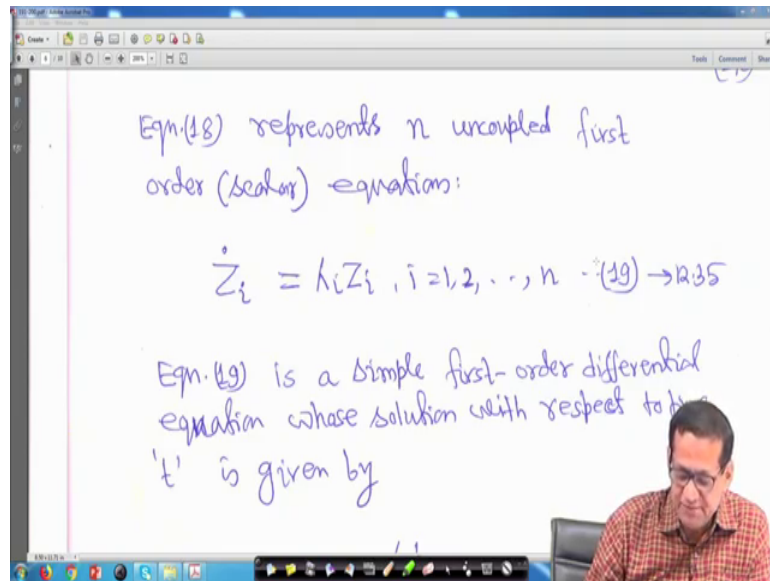 Create
201%
Tools Comment
Eqn.(18) represents n uncoupled first
order (scalar) equation:
Żᵢ = λᵢZᵢ , i = 1, 2, . . , n - - (19) → 12.35
Eqn.(19) is a simple first-order differential
equation whose solution with respect to
't' is given by